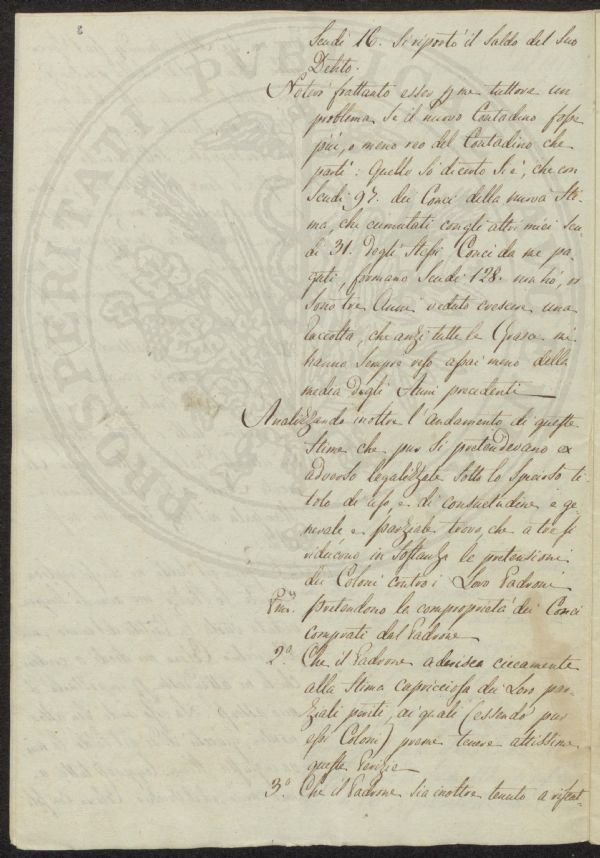 8
Scudi 16. Si riportò il Saldo del Suo
Debito.
Noterò frattanto esser p me tuttora un
problema Se il nuovo Contadino fosse
più, o meno reo del Contadino che
partì: Quello So di certo Si è, che con
Scudi 97. dei Conci della nuova Sti-
ma, che cumulati congli altri miei Scu-
di 31. degli Stessi Conci da me pa-
gati, formano Scudi 128. non hò, or
Sono tre Anni veduto crescere una
raccolta, che anzi tutte le Grasce mi
hanno Sempre reso assai meno della
media degli Anni precedenti
Analizzando inoltre l'andamento di queste
Stime che pur Si pretendevano ex
adverso legalizzate Sotto lo Specioso ti-
tolo di uso, e di consuetudine e ge-
nerale e parziale trovo, che a tre si
riducono in Sostanza le pretensioni
dei Coloni contro i Loro Padroni
Pmo. pretendono la comproprietà dei Conci
comprati dal Padrone
2º. Che il Padrone aderisca ciecamente
alla Stima capricciosa dei Loro par-
ziali periti, ai quali (essendo pur
essi Coloni) preme tenere altissime
queste Perizie
3º. Che il Padrone Sia inoltre tenuto a
PROSPERITATI PVBLICAE